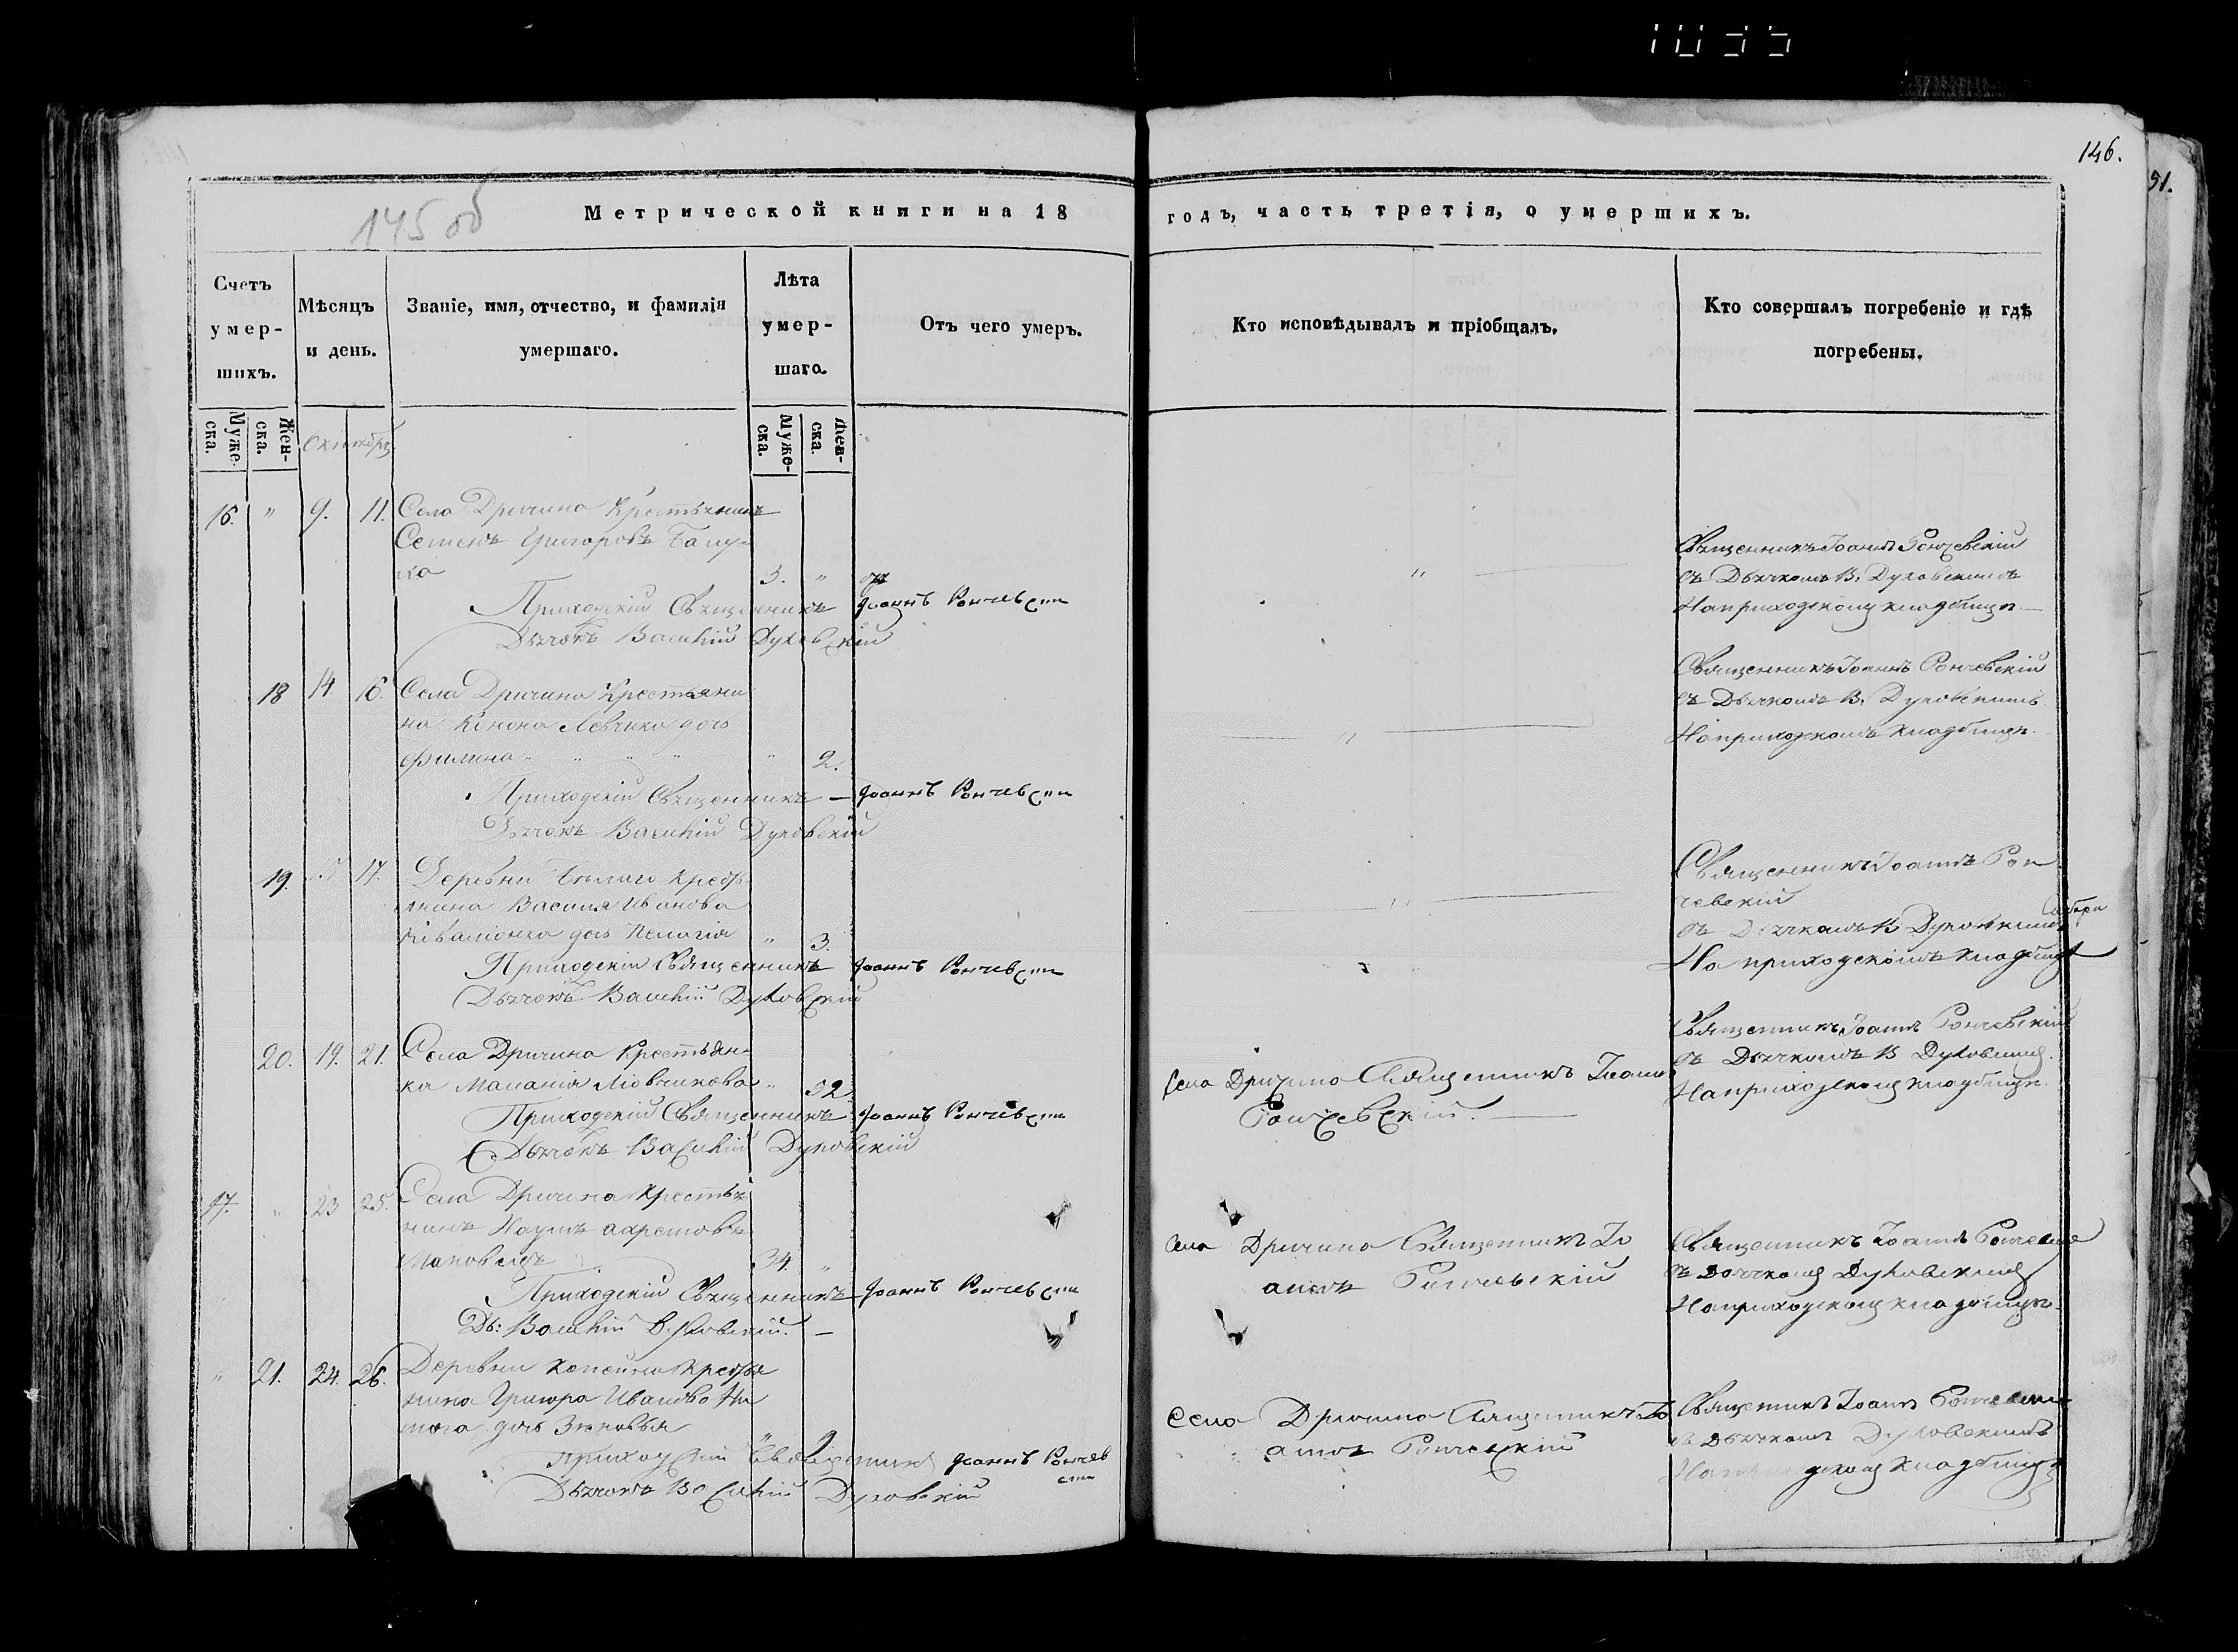 146.
51.
145 об
Метрической книги на 18
годъ, часть третія, о умершихъ.
Счетъ умер-шихъ.
Мѣсяцъ и день.
Званіе, имя, отчество, и фамилія умершаго.
Лѣта умер-шаго.
Отъ чего умеръ.
Кто исповѣдывалъ и пріобщалъ.
Кто совершалъ погребеніе и гдѣ погребены.
Муже-ска.
Жен-ска.
Муже-ска.
Жен-ска.
16. " 9. 11. Села Дричина Крестьянинъ
Семенъ Григоровъ
3. "
Приходскій Священникъ Іоаннъ Рончевскій
Дьячокъ Василій Духовскій
Священникъ Іоаннъ Рончевскій
съ Дьячкомъ В. Духовскимъ
На приходскомъ кладбищѣ
18 14 16. Села Дричина Крестьяни
на Левчика дочь
" " " " 2.
Приходскій Священникъ — Іоаннъ Рончевскій
Дьячокъ Василій Духовскій
Священникъ Іоаннъ Рончевскій
съ Дьячкомъ В. Духовскимъ
На приходскомъ кладбищѣ.
19. 17. Деревни Крестья
нина Василія Иванова
дочь Пелагія " 3.
Приходскій Священникъ Іоаннъ Рончевскій
Дьячокъ Василій Духовскій
Священникъ Іоаннъ Рон
чевскій
съ Дьячкомъ В Духовскимъ
На приходскомъ кладбищѣ
20. 19. 21. Села Дричина Крестьян-
ка Маланія " 92
Приходскій Священникъ Іоаннъ Рончевскій
Дьячокъ Василій Духовскій
Села Дричина Священникъ Іоаннъ
Рончевскій.
Священникъ Іоаннъ Рончевскій
съ Дьячкомъ В Духовскимъ.
На приходскомъ кладбищѣ.
17. " 23 25. Села Дричина Крестья
нинъ Наумъ
34. "
Приходскій Священникъ Іоаннъ Рончевскій
Дь: Василій Духовскій. —
Села Дричина Священникъ Іо
аннъ Рончевскій
Священникъ Іоаннъ Рончевскій
съ Дьячкомъ Духовскимъ
На приходскомъ кладбищѣ.
" 21. 24. 26. Деревни Крестья
нина Григора Иванова
дочь Зѣновья
" 9
Приходскій Священникъ Іоаннъ Рончев
скій
Дьячокъ Василій Духовскій
Села Дричина Священникъ Іо
аннъ Рончевскій
Священникъ Іоаннъ Рончевскій
съ Дьячкомъ Духовскимъ
На приходскомъ кладбищѣ